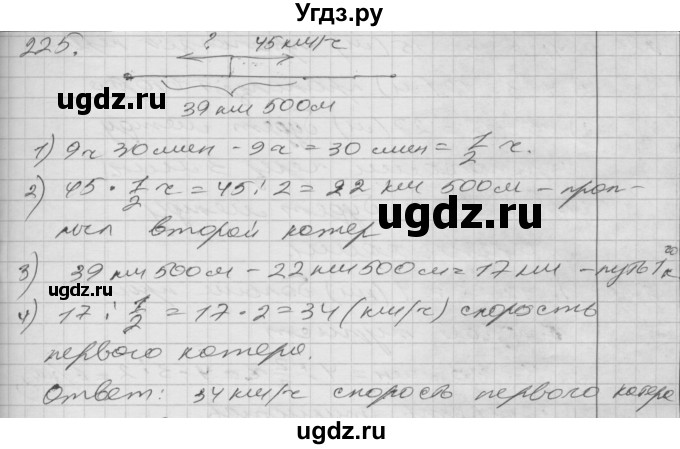 Угдз.ру
225.
? 45 км/ч
39 км 500м
ugdz.ru
1) 9ч 30мин - 9ч = 30 мин = 1/2 ч.
2) 45 · 1/2 ч = 45 : 2 = 22 км 500м - проп-
лыл второй катер
ugdz.ru
3) 39 км 500м - 22 км 500м = 17 км - путь 1го к
ugdz.ru
4) 17 : 1/2 = 17 · 2 = 34 (км/ч) скорость
первого катера.
Ответ: 34 км/ч скорость первого катера
ugdz.ru